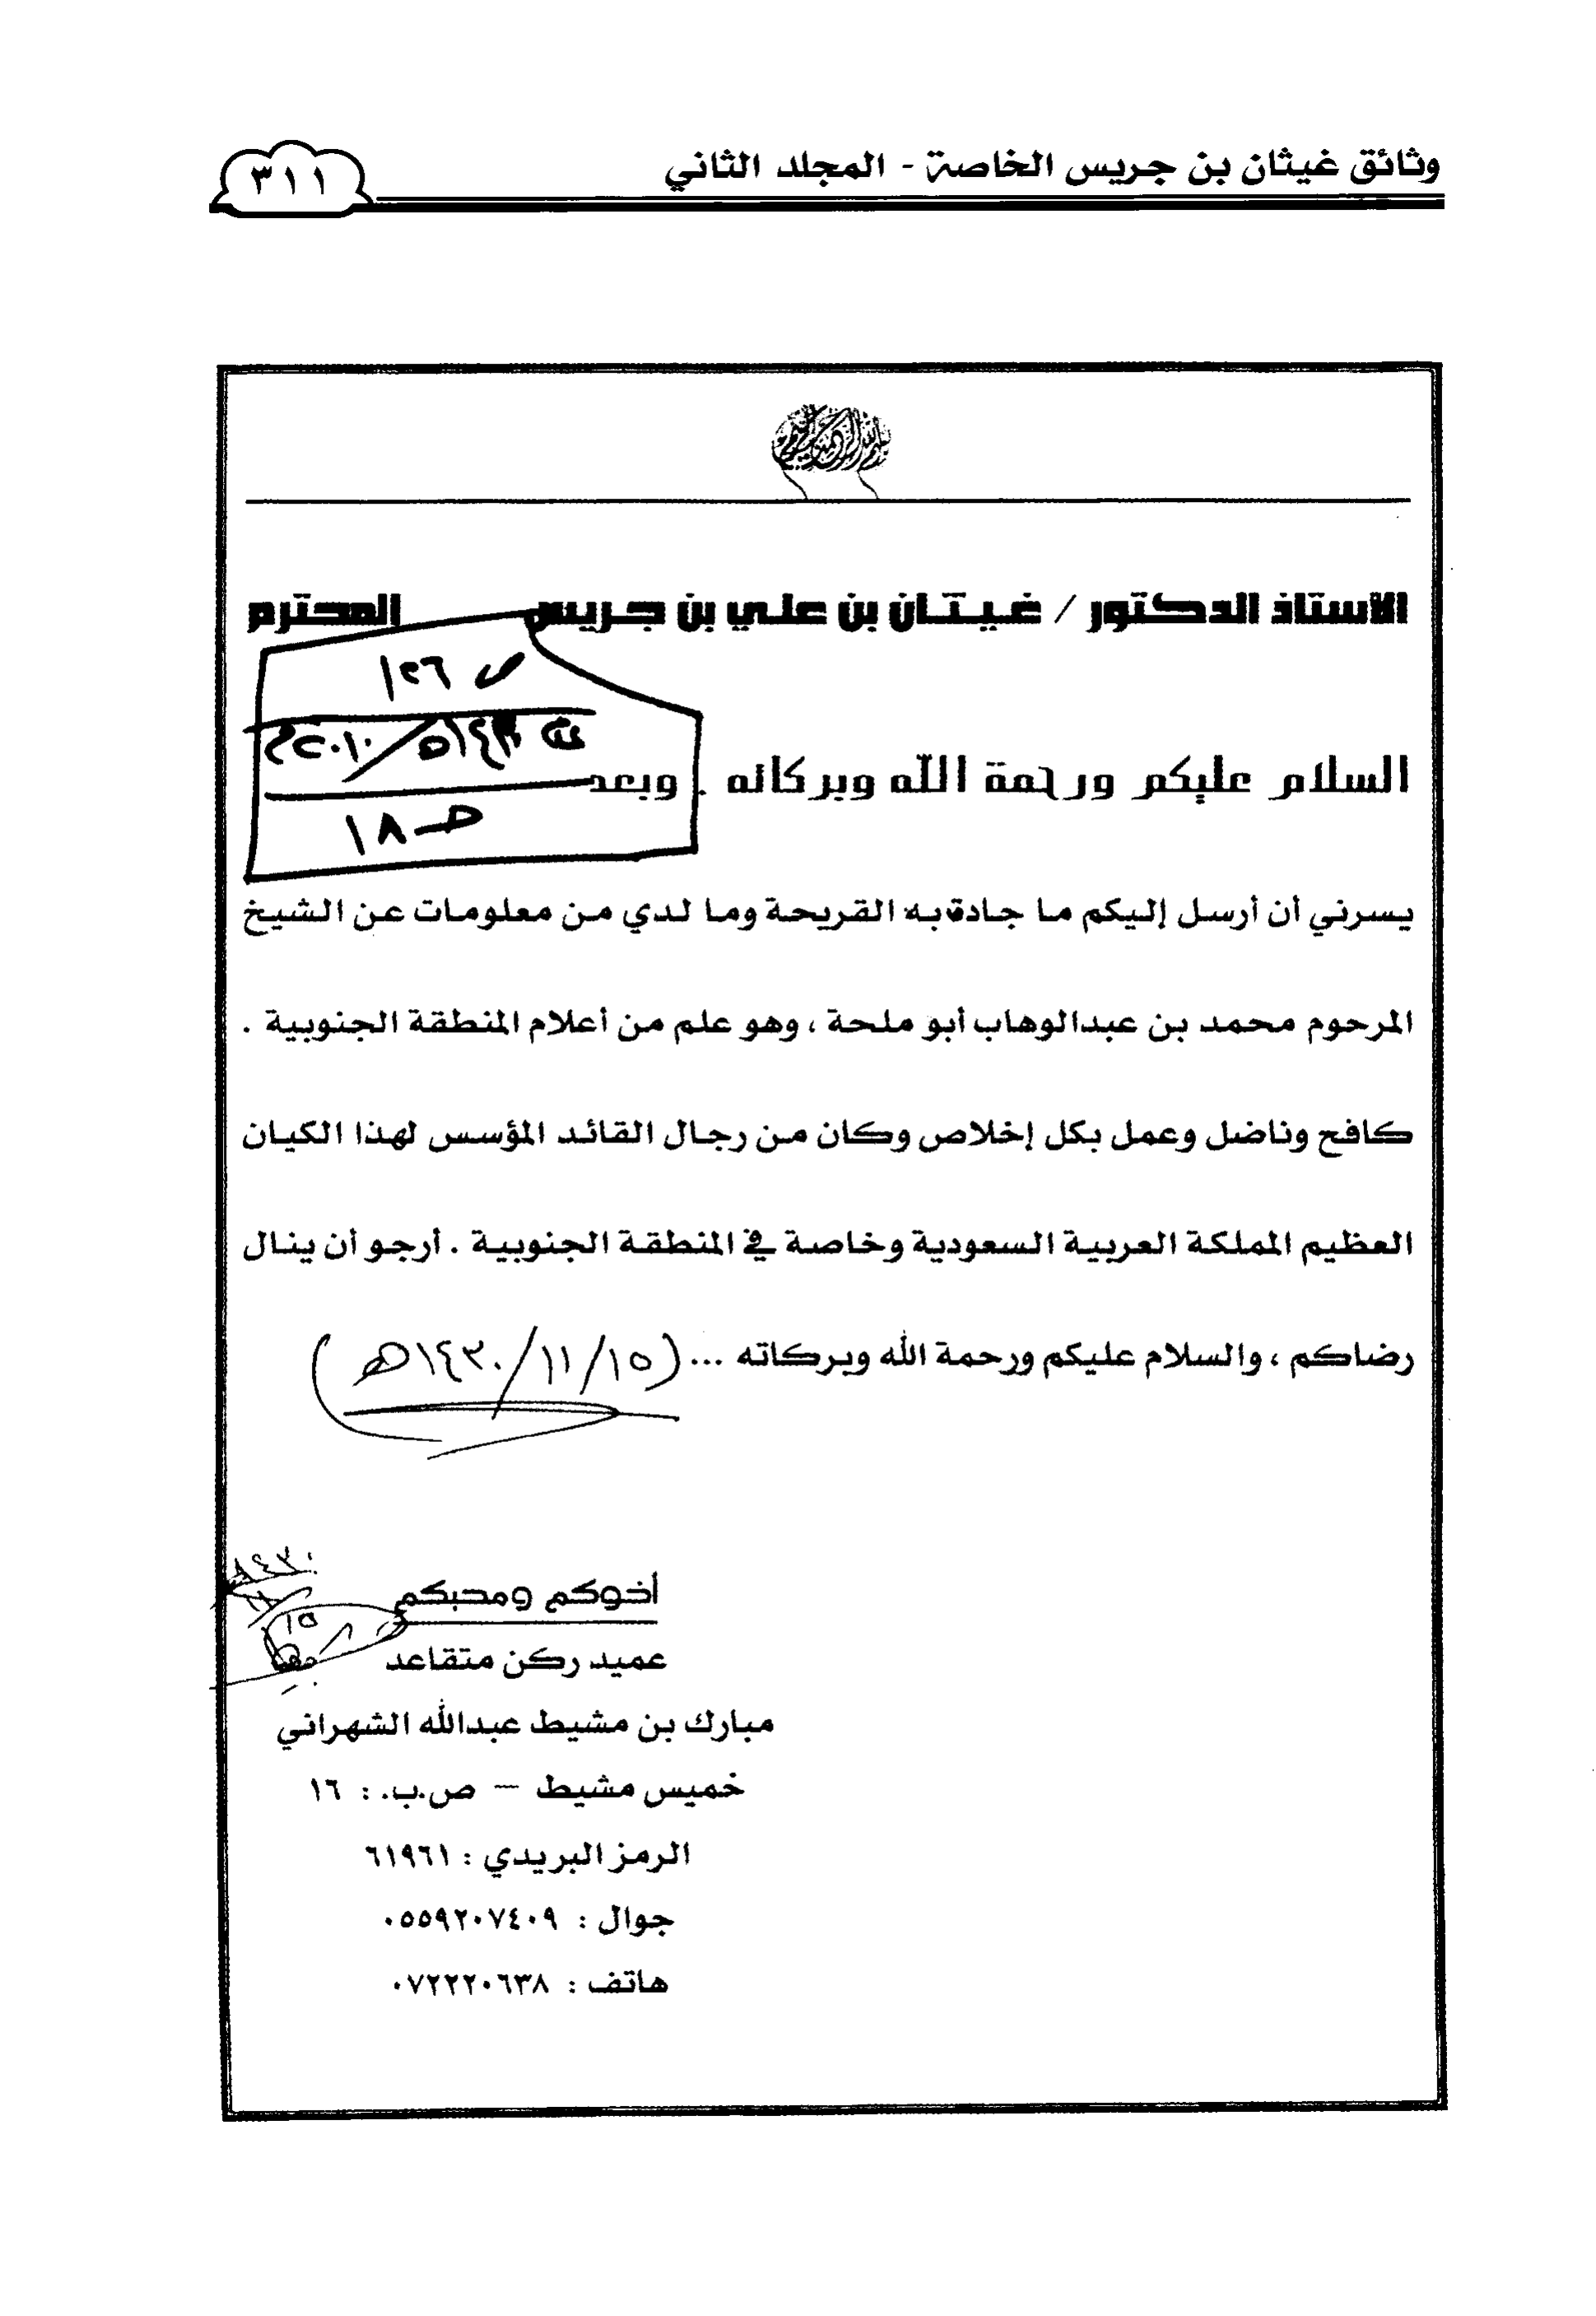 وثائق غيثان بن جريس الخاصة - المجلد الثاني
٣١١
بسم الله الرحمن الرحيم
الاستاذ الدكتور / غيثان بن علي بن جريس المحترم
ص ١٢٦
السلام عليكم ورحمة الله وبركاته . وبعد
ص ١٨
يسرني أن أرسل إليكم ما جادة به القريحة وما لدي من معلومات عن الشيخ
المرحوم محمد بن عبدالوهاب أبو ملحة ، وهو علم من أعلام المنطقة الجنوبية .
كافح وناضل وعمل بكل إخلاص وكان من رجال القائد المؤسس لهذا الكيان
العظيم المملكة العربية السعودية وخاصة في المنطقة الجنوبية . أرجو أن ينال
رضاكم ، والسلام عليكم ورحمة الله وبركاته ... (١٥/١١/١٤٣٠هـ)
أخوكم ومحبكم
عميد ركن متقاعد
مبارك بن مشيط عبدالله الشهراني
خميس مشيط – ص.ب. : ١٦
الرمز البريدي : ٦١٩٦١
جوال : ٠٥٥٩٢٠٧٤٠٩
هاتف : ٠٧٢٢٢٠٦٣٨